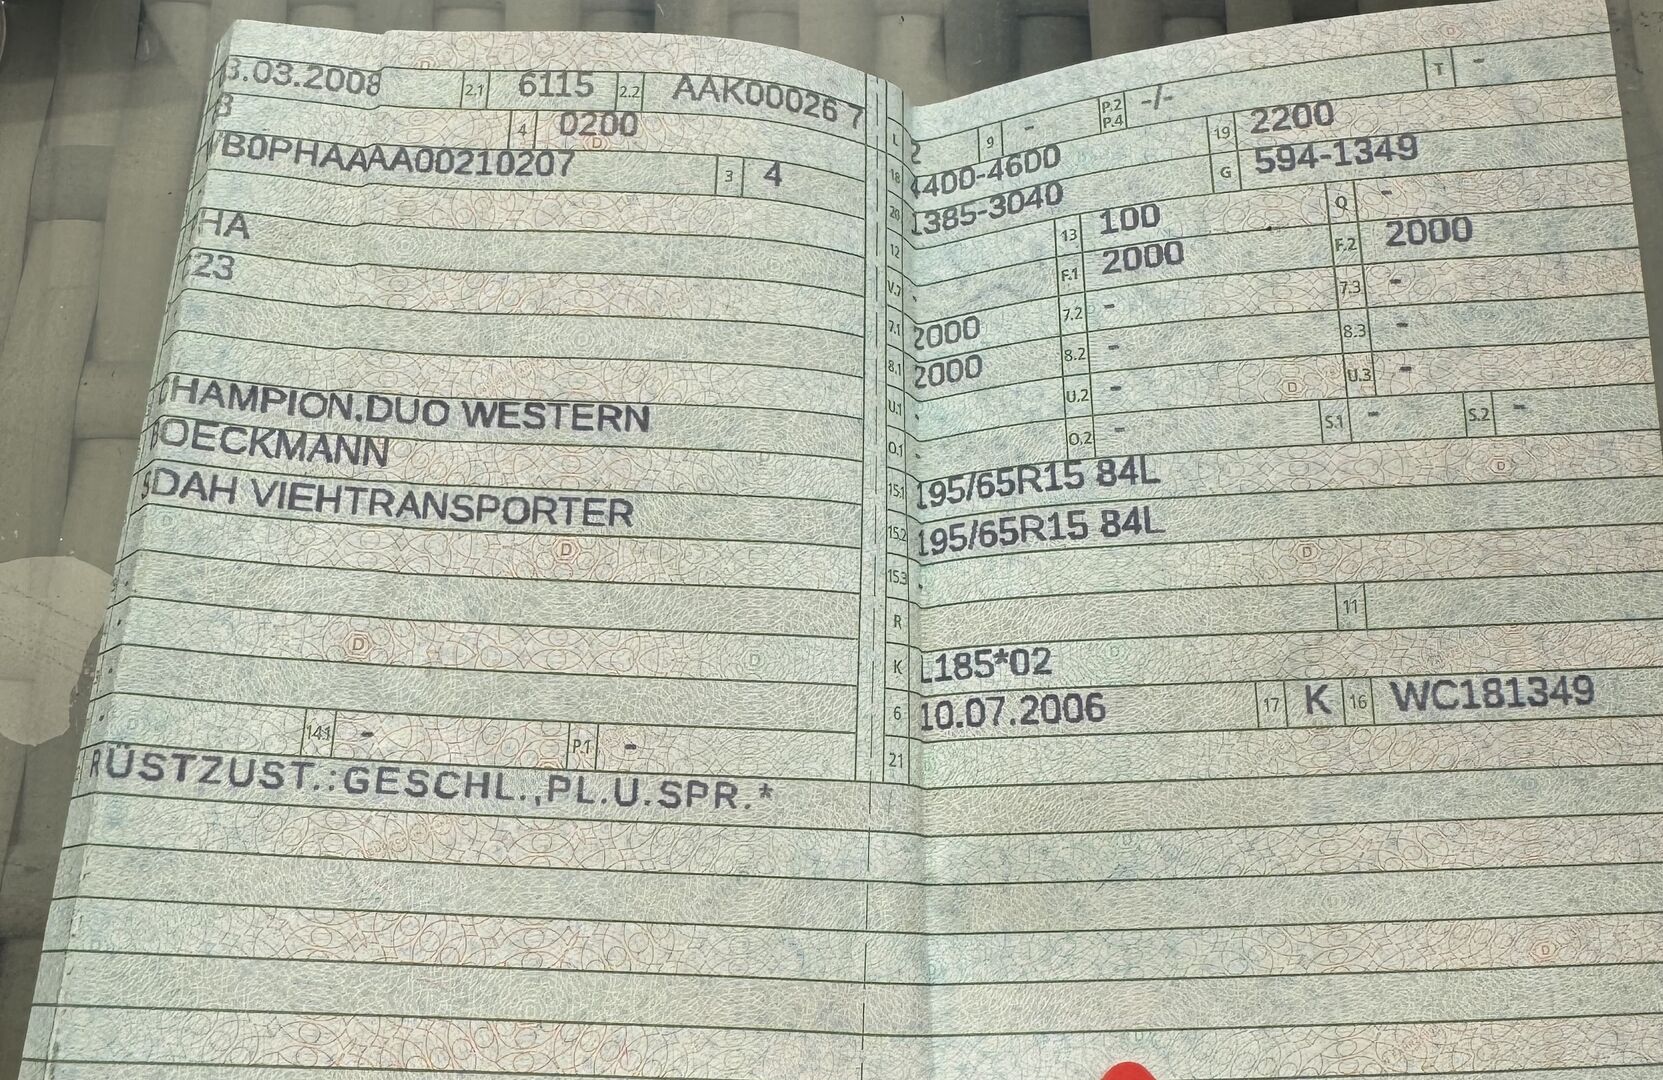 3.03.2008 2.1 6115 2.2 AAK00026 7
4 0200
B0PHAAAA00210207 3 4
HA
23
HAMPION.DUO WESTERN
OECKMANN
SDAH VIEHTRANSPORTER
14.1 - P.1 -
RÜSTZUST.:GESCHL.,PL.U.SPR.*
L 2 9 - P.2 P.4 -/- T -
18 4400-4600 19 2200
20 1385-3040 G 594-1349
12 13 100 Q -
V.7 - F.1 2000 F.2 2000
7.1 2000 7.2 - 7.3 -
8.1 2000 8.2 - 8.3 -
U.1 - U.2 - U.3 -
O.1 - O.2 - S.1 - S.2 -
15.1 195/65R15 84L
15.2 195/65R15 84L
15.3 -
R 11
K L185*02
6 10.07.2006 17 K 16 WC181349
21